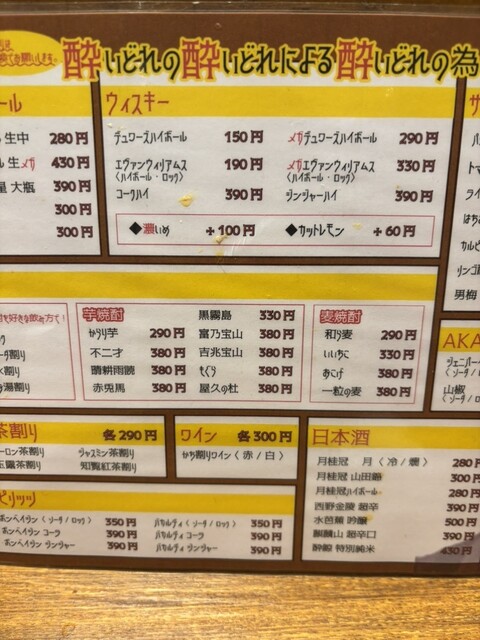 酔いどれの酔いどれによる酔いどれの為
ール
生中 280円
生 メガ 430円
大瓶 390円
300円
300円
ウィスキー
デュワーズハイボール 150円
メガデュワーズハイボール 290円
エヴァンウィリアムス 190円
(ハイボール・ロック)
メガエヴァンウィリアムス 330円
(ハイボール・ロック)
コークハイ 390円
ジンジャーハイ 390円
◆濃いめ +100円
◆カットレモン +60円
トマ
ライ
はちみ
カルピ
リンゴ
男梅
を好きな飲み方で!
芋焼酎
かりり芋 290円
不二才 380円
晴耕雨読 380円
赤兎馬 380円
黒霧島 330円
富乃宝山 380円
吉兆宝山 380円
もぐら 380円
屋久の杜 380円
麦焼酎
和ら麦 290円
いいちこ 330円
おこげ 380円
一粒の麦 380円
AKA
ジェニパー
(ソーダ/
山椒
(ソーダ/
茶割り 各290円
ーロン茶割り
ジャスミン茶割り
玉露茶割り
知覧紅茶割り
ワイン 各300円
かち割りワイン(赤/白)
日本酒
月桂冠 月(冷/燗) 280円
月桂冠 山田錦 300円
月桂冠ハイボール 280円
西野金陵 超辛 390円
水芭蕉 吟醸 500円
麒麟山 超辛口 390円
酔鯨 特別純米 430円
ピリッツ
ボンベイジン(ソーダ/ロック) 350円
ボンベイジン コーク 390円
ボンベイジン ジンジャー 390円
バカルディ(ソーダ/ロック) 350円
バカルディ コーク 390円
バカルディ ジンジャー 390円